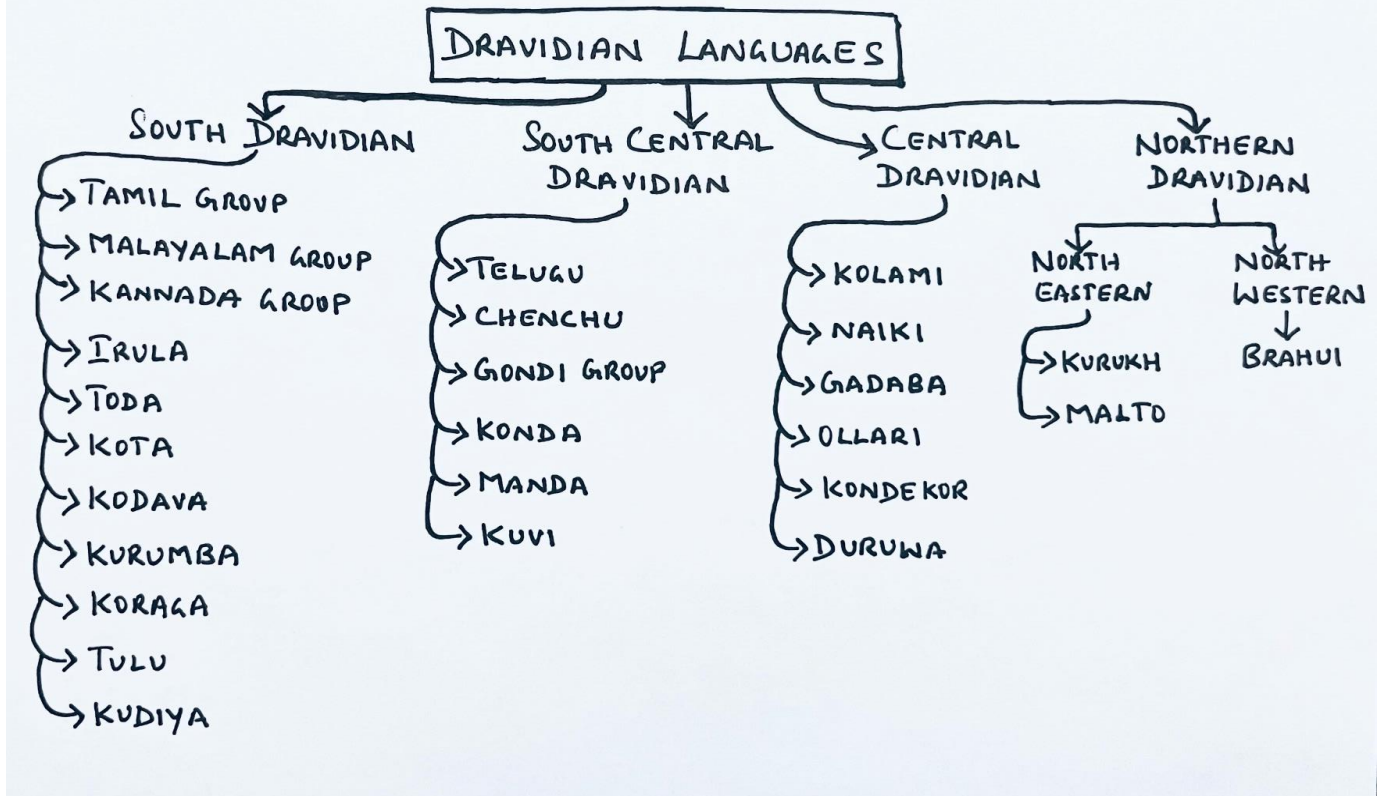 DRAVIDIAN LANGUAGES
SOUTH DRAVIDIAN
TAMIL GROUP
MALAYALAM GROUP
KANNADA GROUP
IRULA
TODA
KOTA
KODAVA
KURUMBA
KORAGA
TULU
KUDIYA
SOUTH CENTRAL
DRAVIDIAN
TELUGU
CHENCHU
GONDI GROUP
KONDA
MANDA
KUVI
CENTRAL
DRAVIDIAN
KOLAMI
NAIKI
GADABA
OLLARI
KONDEKOR
DURUWA
NORTHERN
DRAVIDIAN
NORTH
EASTERN
KURUKH
MALTO
NORTH
WESTERN
BRAHUI